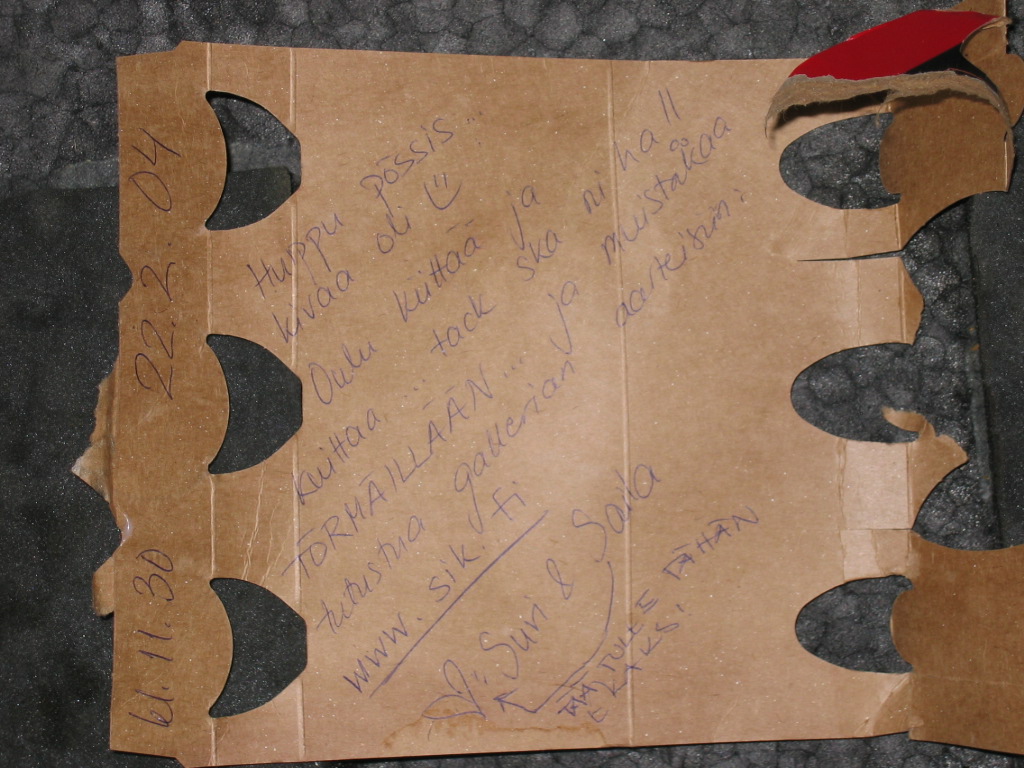 kl. 11.30 22.2.04
Huippu pössis...
kivaa oli
Oulu kiittää ja
kuittaa... tack ska ni ha!!
TÖRMÄILLÄÄN... ja muistakaa
tutustua gallerian aarteisiin!
www.sik.fi
Suvi & Saila
TÄHÄN
KAKS!